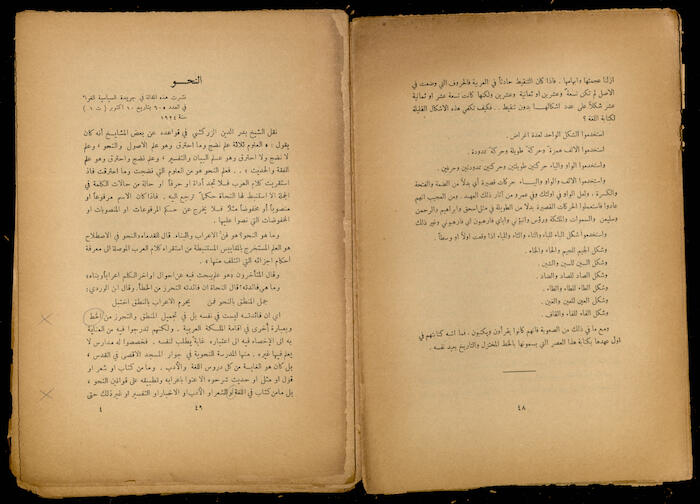 ازلنا عجمتها وابهامها . فاذا كان التنقيط حادثاً في العربية فالحروف التي وضعت في
الاصل لم تكن تسعة وعشرين او ثمانية وعشرين ولكنها كانت تسعة عشر او ثمانية
عشر شكلاً على عدد اشكالها بدون تنقيط .. فكيف تكفي هذه الاشكال القليلة
لكتابة اللغة ؟
استخدموا الشكل الواحد لعدة اغراض .
استخدموا الالف همزة وحركة طويلة وحركة ممدودة .
استخدموا الواو والياء حركتين طويلتين وحركتين ممدودتين وحرفين .
استخدموا الالف والواو والياء حركات قصيرة أي بدلاً من الضمة والفتحة
والكسرة . ولعل الواو في اولئك وفي عمرو من آثار ذلك العهد . ومن العجيب انهم
عادوا فاستعملوا الحركات القصيرة بدلاً من الطويلة في مثل اسحق وابراهيم والرحمن
وسليمن والسموات والملئكة ورؤس واتبعون واياي فارهبون اي فارهبوني وغير ذلك
واستخدموا شكل الباء للباء والتاء والثاء والنون والياء اذا وقعت اولاً او وسطاً .
وشكل الجيم للجيم والحاء والخاء .
وشكل السين للسين والشين .
وشكل الصاد للصاد والضاد .
وشكل الطاء للطاء والظاء .
وشكل العين للعين والغين .
وشكل الفاء للفاء والقاف .
ومع ما في ذلك من الصعوبة فانهم كانوا يقرأون ويكتبون . فما اشبه كتابتهم في
اول عهدها بكتابة هذا العصر التي يسمونها بالخط المختزل والتاريخ يعيد نفسه .
٤٨
النحو
نشرت هذه المقالة في جريدة السياسية الغراء
في العدد ٦٠٥ بتاريخ ١٠ اكتوبر ( ت ١ )
سنة ١٩٢٤
نقل الشيخ بدر الدين الزركشي في قواعده عن بعض المشايخ أنه كان
يقول : « العلوم ثلاثة علم نضج وما احترق وهو علم الاصول والنحو ، وعلم
لا نضج ولا احترق وهو علم البيان والتفسير ، وعلم نضج واحترق وهو علم
الفقه والحديث » . فعلم النحو هو من العلوم التي نضجت وما احترقت فاذا
استقريت كلام العرب فلا تجد أداة او حرفاً او حالة من حالات الكلمة في
الجملة الا استنبط لها النحاة حكماً ترجع اليه . فاذا كان الاسم مرفوعاً او
منصوباً أو مخفوضاً مثلاً فلا يخرج عن حكم المرفوعات او المنصوبات او
المخفوضات التي نصوا عليها .
وما هو النحو؟ هو فن الاعراب والبناء. قال القدماء والنحو في الاصطلاح
هو العلم المستخرج بالمقاييس المستنبطة من استقراء كلام العرب الموصلة الى معرفة
أحكام اجزائه التي ائتلف منها » .
وقال المتأخرون وهو علم يبحث فيه عن احوال اواخر الكلم اعراباً وبناء ؛
وما هي فائدته ؟ قال النحاة ان فائدته التحرز من الخطأ. وقال ابن الوردي:
جمل المنطق بالنحو فمن يحرم الاعراب بالنطق اختبل
اي ان فائدته ليست في نفسه بل في تجميل المنطق والتحرز من الخطا
وبعبارة أخرى في اقامة الملكة العربية . ولكنهم تدرجوا فيه من العناية
به الى الاخصاء فيه الى اعتباره غاية يطلب لنفسه . فخصصوا له مدارس لا
يعلم فيها غيره . منها المدرسة النحوية في جوار المسجد الاقصى في القدس ،
بل كان هو الغاية من كل دروس اللغة والأدب . وما من كتاب او شعر او
قول او مثل او حديث شرحوه الا عنوا باعرابه وتطبيقه على قوانين النحو ،
بل ما من كتاب في اللغة أو الشعر او الأدب او الاخبار او التفسير او غير ذلك حتى
٤٩
٤